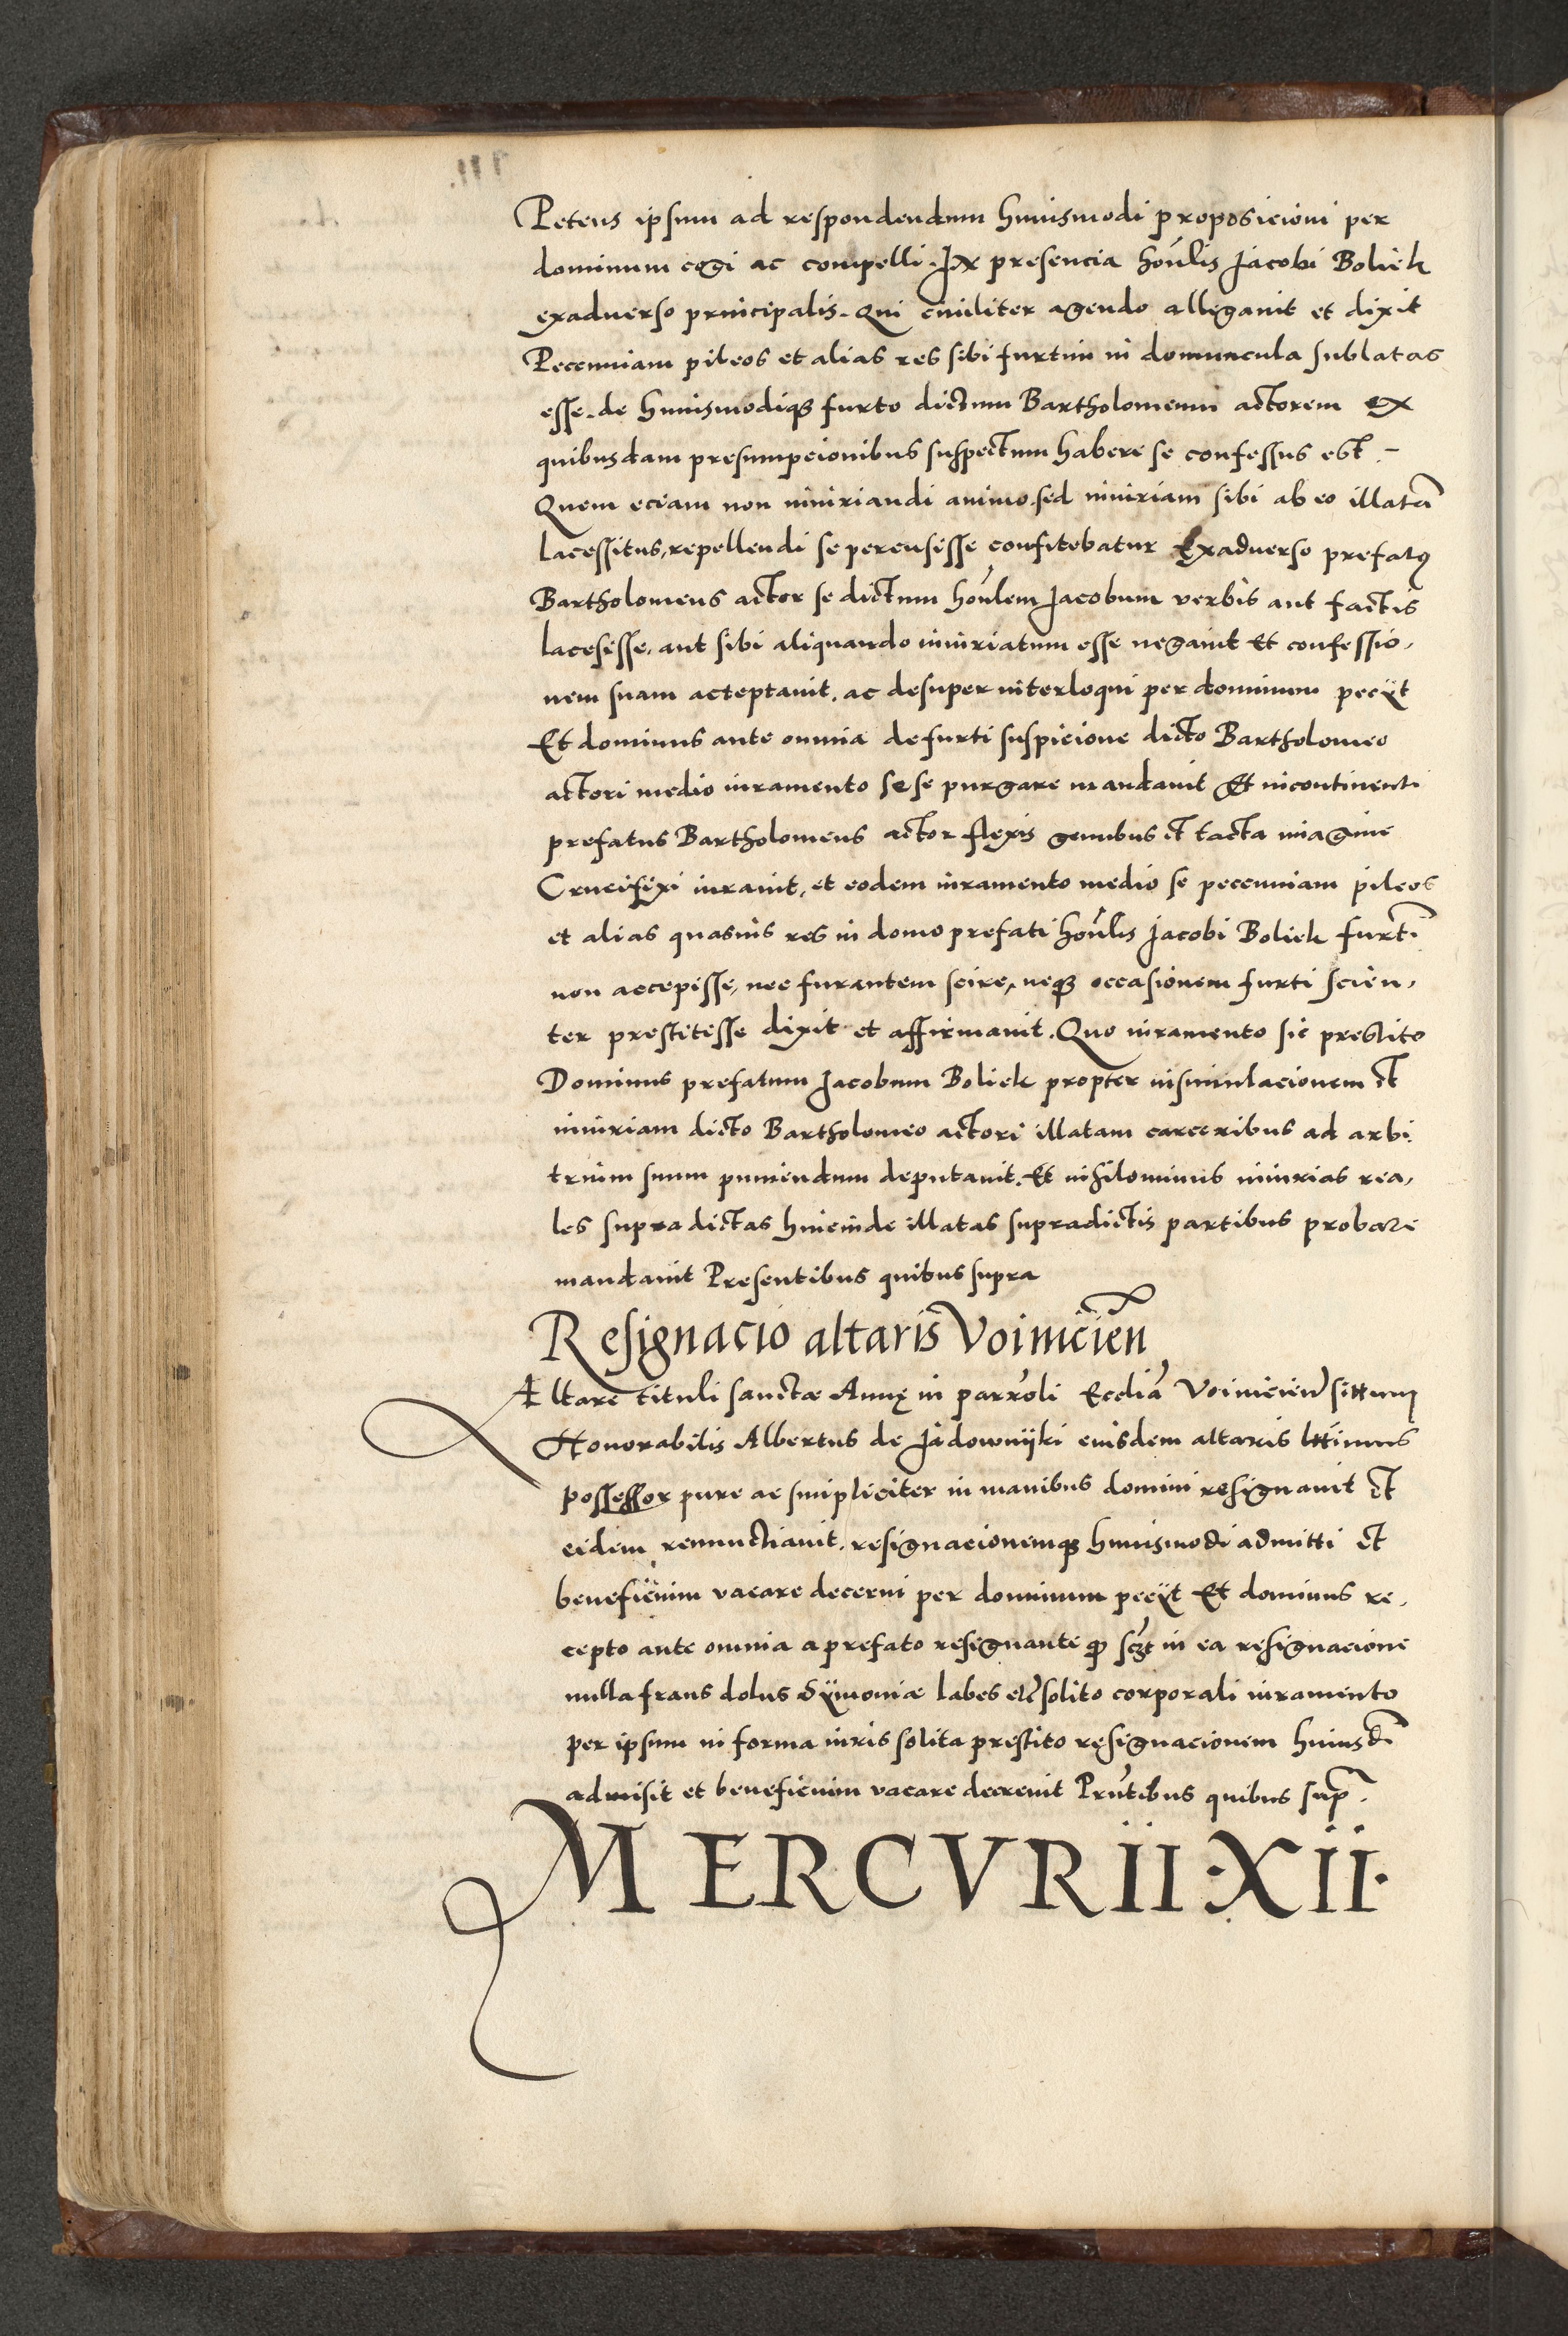 Petens ipsum ad respondendum huiusmodi proposicioni per
dominum cogi ac compelli. In presencia hon̄lis Jacobi Boliek
exaduerso principalis. Qui ciuiliter agendo allegauit et dixit
Pecunniam pileos et alias res sibi furtim in domuncula sublatas
esse. de huiusmodiq; furto dictum Bartholomeum actorem ex
quibusdam presumpcionibus suspectum habere se confessus est. –
Quem eciam non iniuriandi animo. sed iniuriam sibi ab eo illatā
lacessitus, repellendi se percusisse confitebatur Exaduerso prefatꝰ
Bartholomeus actor se dictum hon̄lem Jacobum verbis aut factis
lacesisse, aut sibi aliquando iniuriatum esse negauit Et confessio,
nem suam acceptauit, ac desuper interloqui per dominum peciit
Et dominus ante omnia de furti suspicione dicto Bartholomeo
actori medio iuramento sese purgare mandauit Et incontinenti
prefatus Bartholomeus actor flexis genubus et tacta imagine
Crucifixi iurauit, et eodem iuramento medio se pecunniam pileos
et alias quasuis res in domo prefati hon̄lis Jacobi Boliek furtī
non accepisse, nec furantem scire, neq; occasionem furti scien,
ter prestitisse dixit et affirmauit. Quo iuramento sic prestito
Dominus prefatum Jacobum Boliek propter insimulacionem et
iniuriam dicto Bartholomeo actori illatam carceribus ad arbi
trium suum puniendum deputauit. Et nihilominus iniurias rea,
les supradictas hincinde illatas supradictis partibus probare
mandauit Presentibus quibus supra
Resignacio altaris Voinicien̄
Altare tituli sanctæ Annę in parroli Eccliā Voinicien̄ sittum
Honorabilis Albertus de Jadownijki eiusdem altaris lttimus
possessor pure ac simpliciter in manibus domini resignauit et
eidem renunctiauit, resignacionemq; huiusmodi admitti et
beneficium vacare decerni per dominum peciit Et dominus re,
cepto ante omnia a prefato resignante ꝙ sczt in ea resignacione
nulla fraus dolus Sÿmoniæ labes etc̄ solito corporali iuramento
per ipsum in forma iuris solita prestito resignacionem huiusdī
admisit et beneficium vacare decreuit Prn̄tibus quibus sup̄.
MERCVRII·XII·